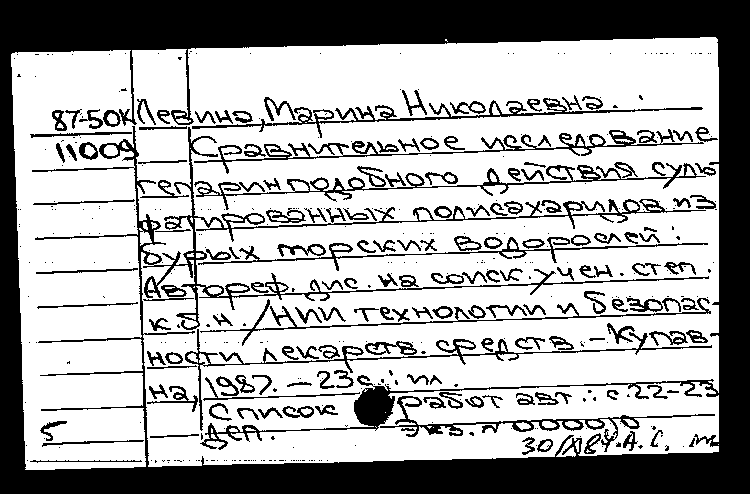 87-50К Левина, Марина Николаевна.
11009 Сравнительное исследование
гепаринподобного действия суль
фатированных полисахаридов из
бурых морских водорослей:
Автореф. дис. на соиск. учен. степ.
к.б.н. / НИИ технологии и безопас-
ности лекарств. средств. - Купав-
на, 1987. - 23 с.: ил.
Список работ авт.: с. 22-23
5 Деп. Экз. N 000010.
А.С.